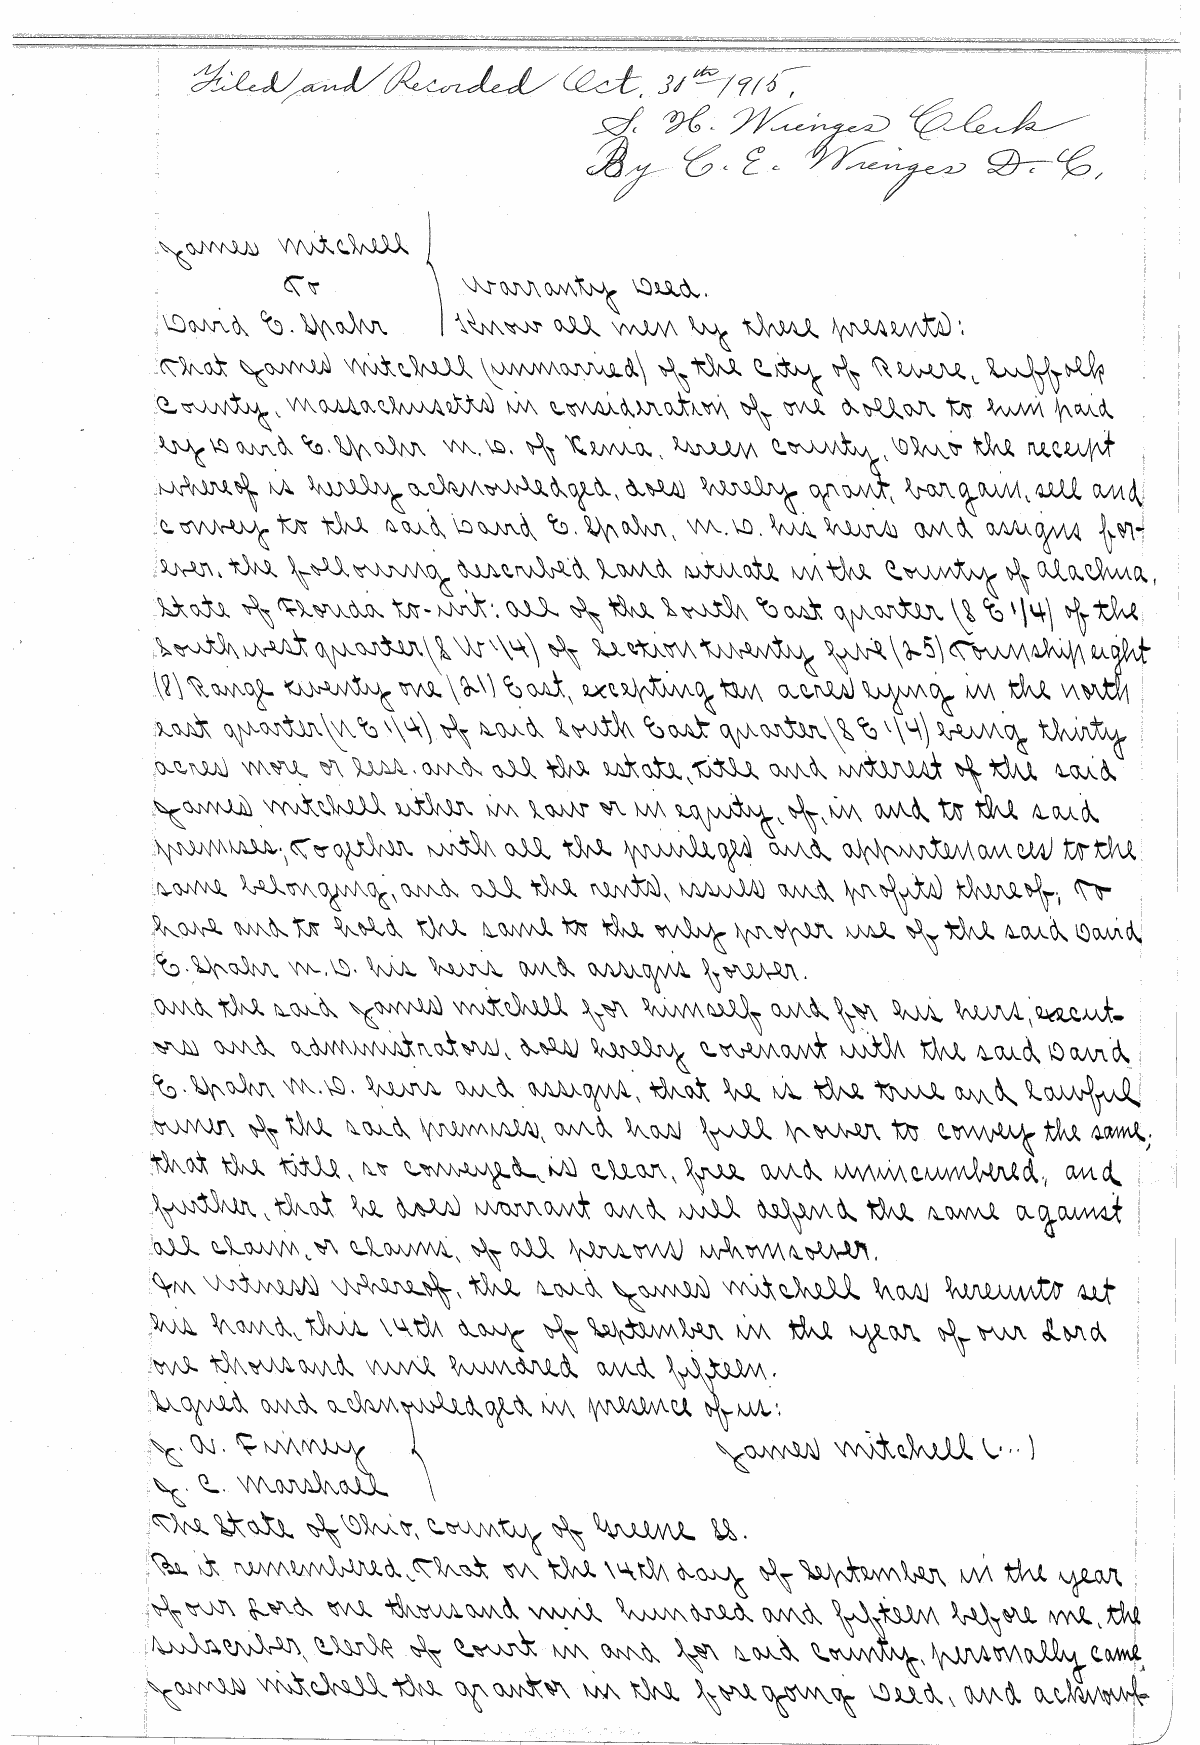 Filed and Recorded Oct. 30th 1915.
S. H. Wienges Clerk
By C. E. Wienges D. C.
James Mitchell
To
Warranty Deed.
David E. Spahr
Know all men by these presents:
That James Mitchell (unmarried) of the City of Revere, Suffolk
County, Massachusetts in consideration of one dollar to him paid
by David E. Spahr M.D. of Xenia, Green County, Ohio the receipt
whereof is hereby acknowledged, does hereby grant, bargain, sell and
convey to the said David E. Spahr, M.D. his heirs and assigns for-
ever, the following described land situate in the County of Alachua,
State of Florida to-wit: all of the South East quarter (S E 1/4) of the
Southwest quarter (S W 1/4) of Section twenty five (25) Township eight
(8) Range twenty one (21) East, excepting ten acres lying in the north
east quarter (N E 1/4) of said South East quarter (S E 1/4) being thirty
acres more or less. and all the estate, title and interest of the said
James Mitchell either in law or in equity, of, in and to the said
premises; Together with all the privileges and appurtenances to the
same belonging, and all the rents, issues and profits thereof; To
have and to hold the same to the only proper use of the said David
E. Spahr M.D. his heirs and assigns forever.
and the said James Mitchell for himself and for his heirs, execut-
ors and administrators, does hereby covenant with the said David
E. Spahr M.D. heirs and assigns, that he is the true and lawful
owner of the said premises, and has full power to convey the same;
that the title, so conveyed, is clear, free and unincumbered, and
further, that he does warrant and will defend the same against
all claim, or claims, of all persons whomsoever.
In Witness Whereof, the said James Mitchell has hereunto set
his hand, this 14th day of September in the year of our Lord
one thousand nine hundred and fifteen.
Signed and acknowledged in presence of us:
J. A. Finney
James Mitchell (...)
J. C. Marshall
The State of Ohio, County of Greene SS.
Be it remembered, That on the 14th day of September in the year
of our Lord one thousand nine hundred and fifteen before me, the
subscriber, Clerk of Court in and for said County, personally came
James Mitchell the grantor in the foregoing Deed, and acknowl-